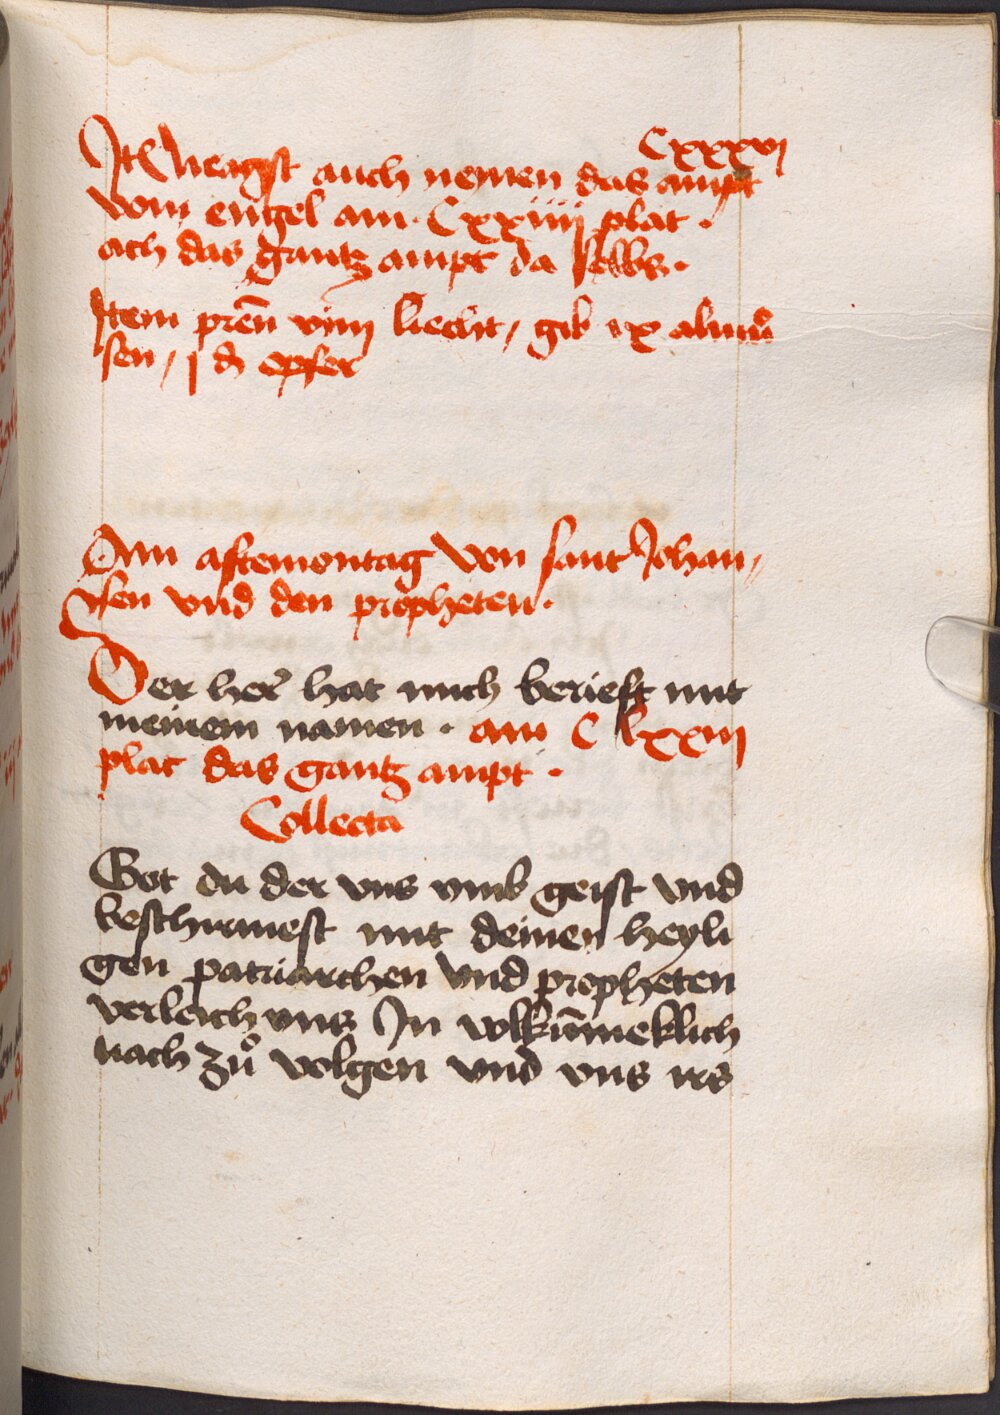 Cxxxvi
It Meagst auch nemen das ampt
vom engel am · Cxxiiii plat ·
ach das gantz ampt da selbs ·
Item pren̄ viiij liecht / gib ix almuͦ
sen / j d opfer
Am aftemontag von sant Johan /
ssen vnd den propheten ·
Der her hat mich berieft mit
meinem namen · am C lxxiij
plat das gantz ampt ·
Collecta
Got du der vns vmb geist vnd
beschirmest mit deinen heyli
gen patriarchen vnd propheten
verleich vns In volkūmeklich
nach zuͦ volgen vnd vns irs